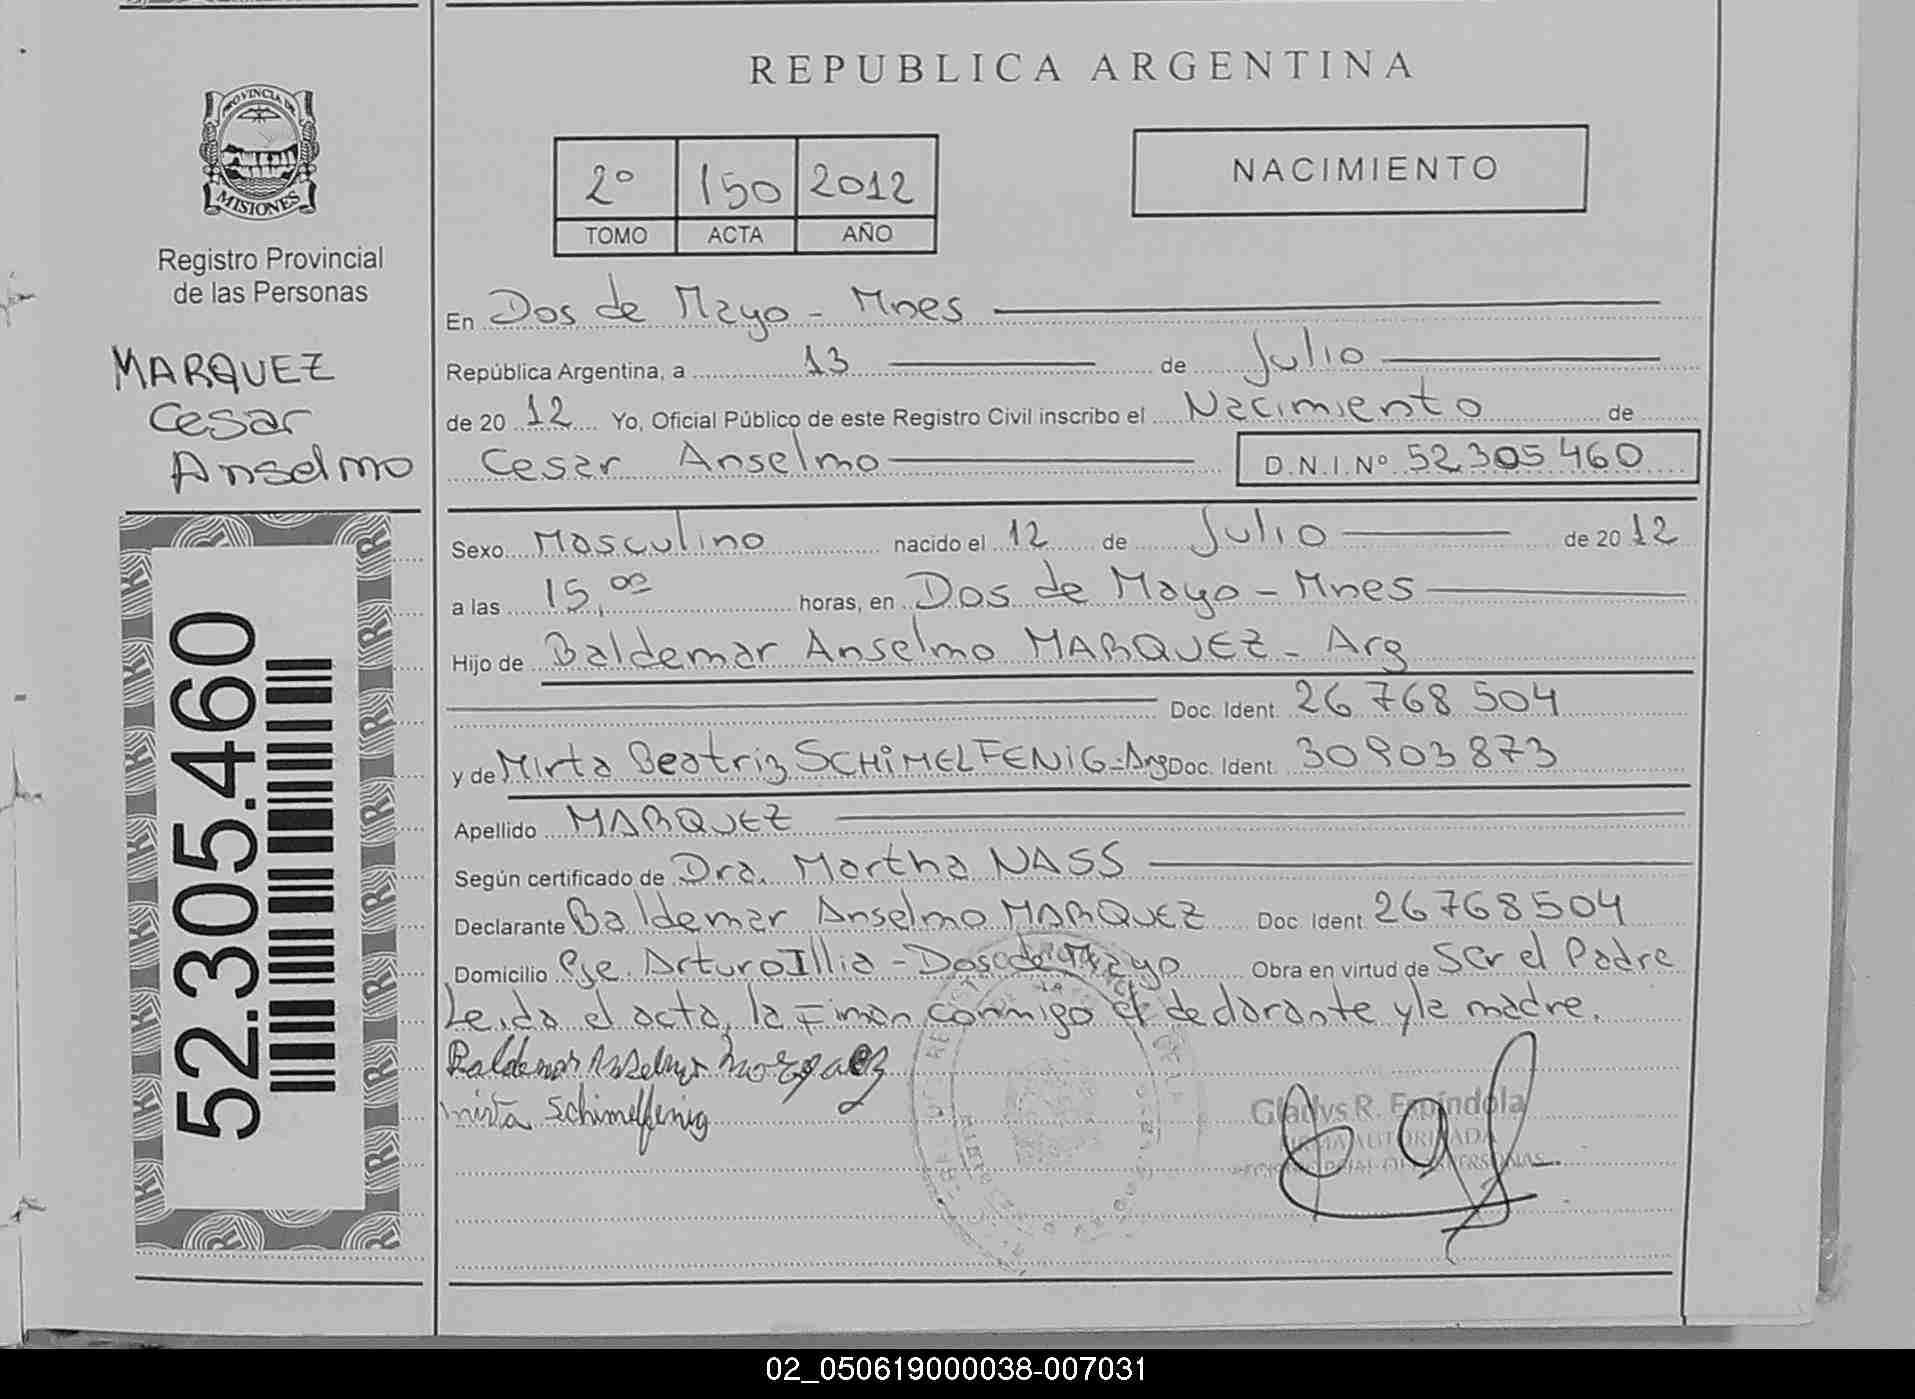 REPUBLICA ARGENTINA
PROVINCIA DE
MISIONES
Registro Provincial
de las Personas
MARQUEZ
Cesar
Anselmo
52.305.460
2º 150 2012
TOMO ACTA AÑO
NACIMIENTO
En Dos de Mayo - Mnes
República Argentina, a 13 de Julio
de 20 12 Yo, Oficial Público de este Registro Civil inscribo el Nacimiento de
Cesar Anselmo D.N.I.Nº 52305460
Sexo Masculino nacido el 12 de Julio de 20 12
a las 15,00 horas, en Dos de Mayo - Mnes
Hijo de Baldemar Anselmo MARQUEZ - Arg
Doc. Ident. 26 768 504
y de Mirta Beatriz SCHiMELFENiG - Arg Doc. Ident. 30903873
Apellido MARQUEZ
Según certificado de Dra. Martha NASS
Declarante Baldemar Anselmo MARQUEZ Doc Ident 26768504
Domicilio Pje. Arturo Illia - Dos de Mayo Obra en virtud de ser el Padre
Leida el acta, la Firman conmigo el declarante y la madre.
Baldemar Anselmo Marquez
mirta Schimelfenig
Gladys R. Espíndola
FIRMA AUTORIZADA
02_050619000038-007031